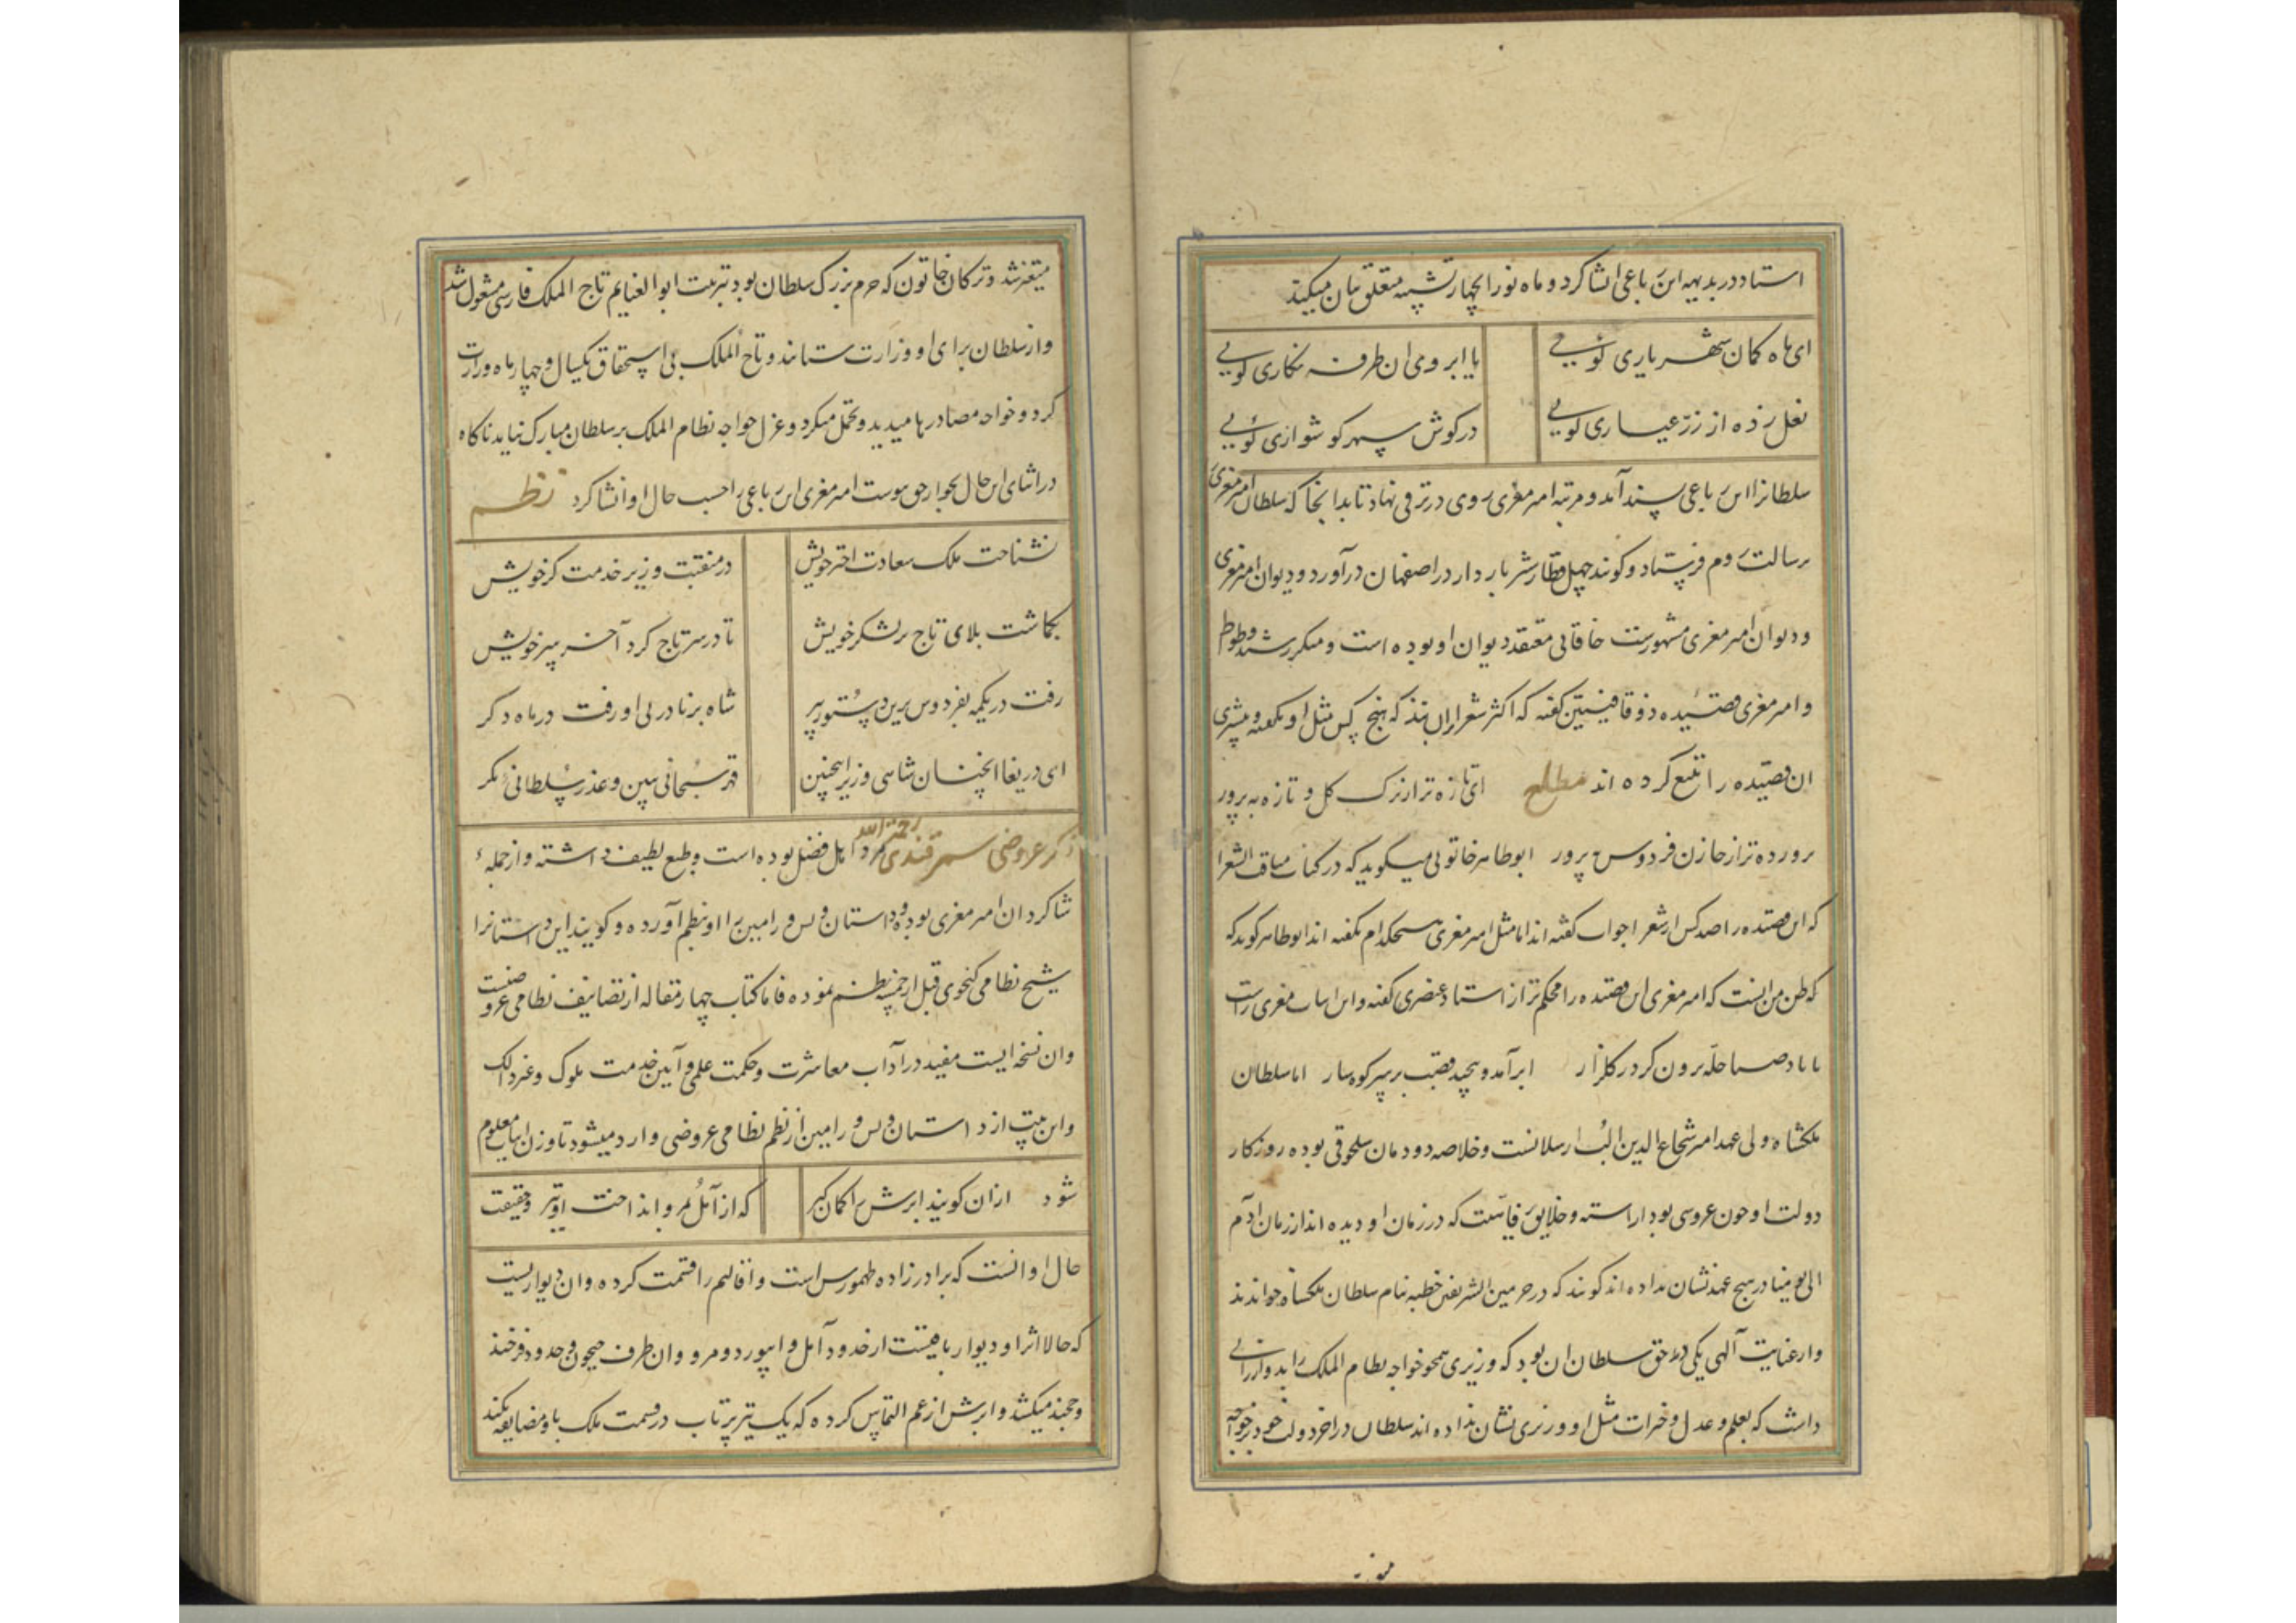 استاد در بدیهه این رباعی انشا کرد و ماه نو را بچهار تشبیه متعلق بیان میکند
ای ماه کمان شهریاری کویی یا ابروی ان طرفه نکاری کویی
نعل زده از زر عیاری کویی در کوش سپهر کوشواری کویی
سلطانرا این رباعی پسند آمد و مرتبه امیر معزی روی در ترقی نهاد تا بدانجا که سلطان امیر معزی
برسالت روم فرستاد و کویند چهل قطار شتر باردار در اصفهان درآورد و دیوان امیر معزی
و دیوان امیر معزی مشهورست خاقانی معتقد دیوان او بوده است و منکر رشید وطواط
و امیر معزی قصیده ذوقافیتین کفته که اکثر شعرا برانند که هیچ کس مثل او نکفته و بیشتری
ان قصیده را تتبع کرده اند مطلع ای تازه تر از برک کل و تازه به بر بر
پرورده تر از خازن فردوس پرور ابوطاهر خاتونی میکوید که در کتاب مناقب الشعرا
که این قصیده را صد کس از شعرا جواب کفته اند اما مثل امیر معزی هیچکدام نکفته اند ابوطاهر کوید که
که ظن من انست که امیر معزی این قصیده را محکم تر از استاد عنصری کفته و این ابیات معزی راست
باد صبا حله برون کرد ز کلزار ابر آمد و پیچید قصب بر سر کوهسار اما سلطان
ملکشاه ولی عهد امیر شجاع الدین الب ارسلانست و خلاصه دودمان سلجوقی بوده روزکار
دولت او چون عروسی بود اراسته و خلایق که در زمان او دیده اند از زمان آدم
الی یومنا در هیچ عهد نشان نداده اند کویند که در حرمین الشریفین خطبه بنام سلطان ملکشاه خواندند
و از عنایت آلهی یکی در حق سلطان ان بود که وزیری همچو خواجه نظام الملک را بدو ارزانی
داشت که بعلم و عدل و خیرات مثل او وزیری نشان نداده اند سلطان در اخر دولت خود بر خواجه
متغیر شد و ترکان خاتون که حرم بزرک سلطان بود بتربیت ابوالغنایم تاج الملک فارسی مشغول شد
و از سلطان برای او وزارت ستاند و تاج الملک بی استحقاق یکسال و چهار ماه وزارت
کرد و خواجه مصادرها میدید و تحمل میکرد و عزل خواجه نظام الملک بر سلطان مبارک نیامد ناکاه
در اثنای این حال بجوار حق پیوست امیر معزی این رباعی را حسب حال او انشا کرد نظم
نشناخت ملک سعادت اختر خویش در منقبت وزیر خدمت کر خویش
بکماشت بلای تاج بر لشکر خویش تا در سر تاج کرد آخر سر خویش
رفت در یکمه بفردوس برین دستور پیر شاه برنا در پی او رفت در ماه دکر
ای دریغا انچنان شاهی وزیر اینچنین قهر سبحانی ببین و عذر سلطانی نکر
ذکر عروضی سمرقندی رحمة الله مرد اهل فضل بوده است و طبع لطیف داشته و از جمله
شاکردان امیر معزی بوده و داستان ویس و رامین را او بنظم آورده و کویند این داستانرا
شیخ نظامی کنجوی قبل از خمسه نظم نموده فاما کتاب چهار مقاله از تصانیف نظامی عروضیست
وان نسخه ایست مفید در آداب معاشرت و حکمت علمی و آیین خدمت ملوک و غیر ذالک
و این بیت از داستان ویس و رامین از نظم نظامی عروضی وارد میشود تا وزن ابیات معلوم
شود ازان کویند ابرش را کمان کیر که از آمل بمرو انداخت او تیر و حقیقت
حال او انست که برادرزاده طهمورس است و اقالیم را قسمت کرده وان دیواریست
که حالا اثر او دیوار باقیست از حدود آمل و ابیورد و مرو وان طرف جیحون و حدود فرخند
و خجند میکشد و ابرش از عم التماس کرده که یک تیر پرتاب در قسمت ملک باو مضایقه نکند